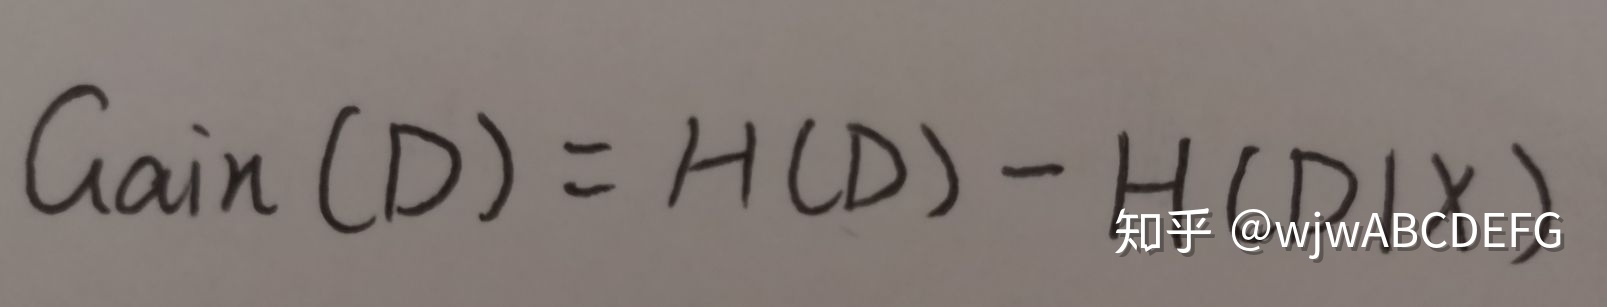 Gain(D) = H(D) - H(D|X)
知乎 @wjwABCDEFG